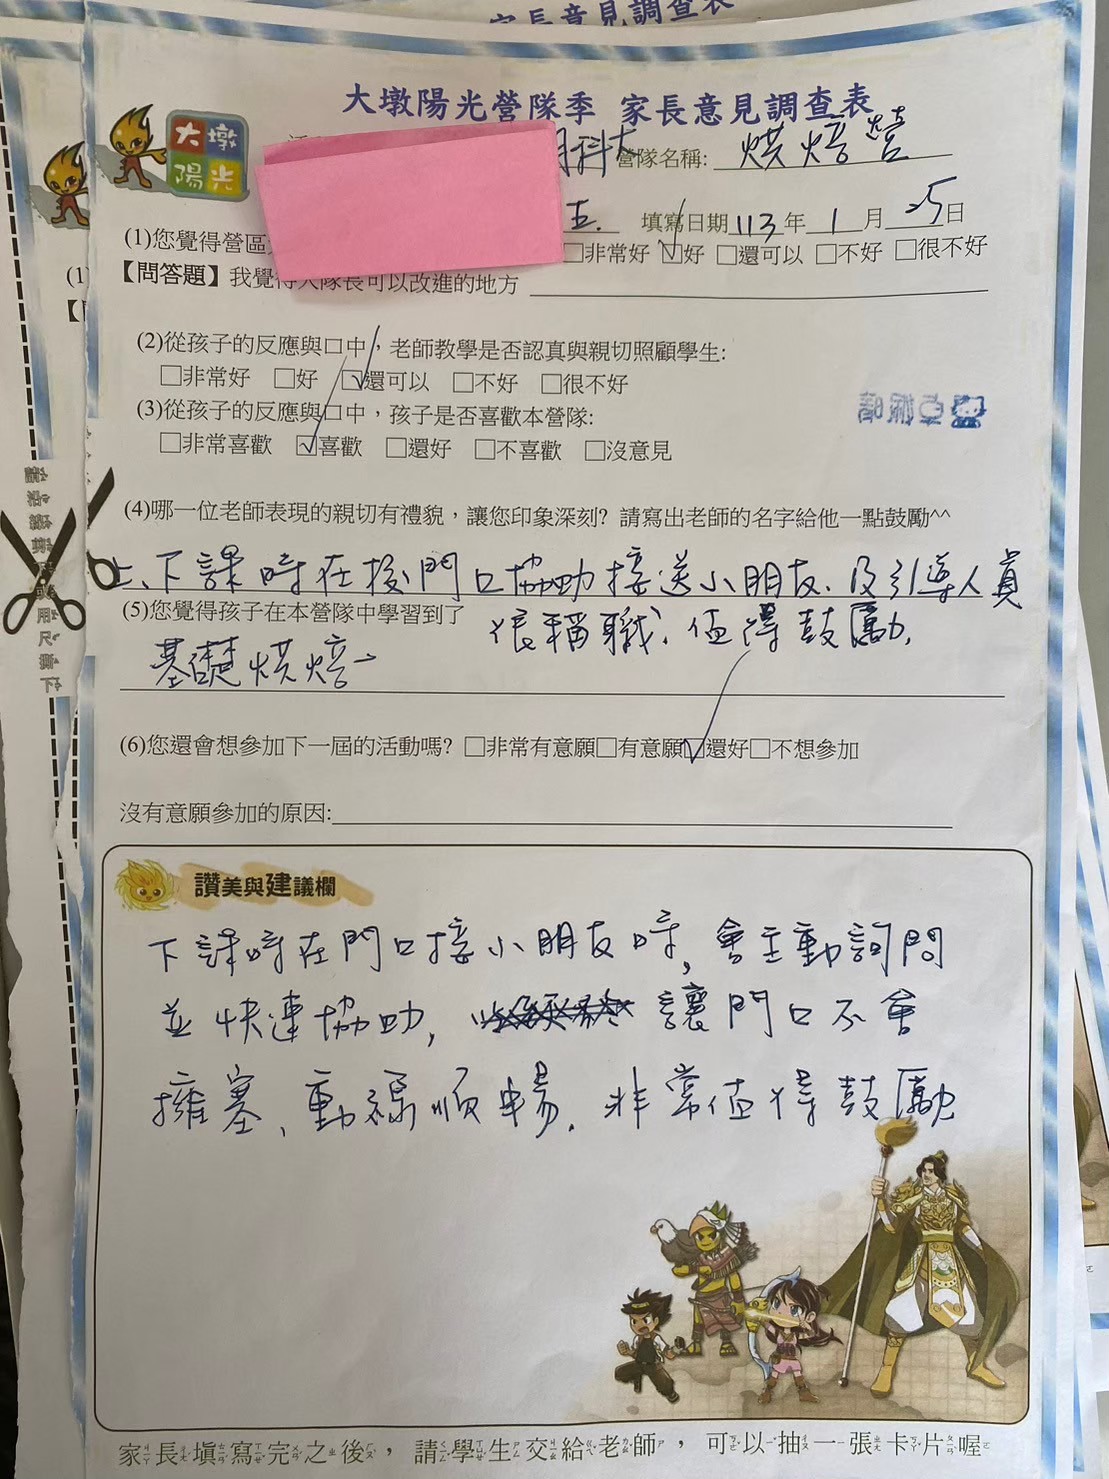 家長意見調查表
大墩陽光營隊季 家長意見調查表
大墩
陽光
科大 營隊名稱: 烘焙營
五. 填寫日期113年1月25日
(1)您覺得營區 □非常好 ☑好 □還可以 □不好 □很不好
【問答題】我覺得大隊長可以改進的地方
(2)從孩子的反應與口中,老師教學是否認真與親切照顧學生:
□非常好 □好 ☑還可以 □不好 □很不好
(3)從孩子的反應與口中,孩子是否喜歡本營隊:
□非常喜歡 ☑喜歡 □還好 □不喜歡 □沒意見
(4)哪一位老師表現的親切有禮貌,讓您印象深刻? 請寫出老師的名字給他一點鼓勵^^
上、下課時在後門口協助接送小朋友、及引導人員
很稱職、值得鼓勵.
(5)您覺得孩子在本營隊中學習到了
基礎烘焙
(6)您還會想參加下一屆的活動嗎? □非常有意願□有意願☑還好□不想參加
沒有意願參加的原因:
讚美與建議欄
下課時在門口接小朋友時,會主動詢問
並快速協助, 讓門口不會
擁塞、動線順暢. 非常值得鼓勵
家長填寫完之後,請學生交給老師,可以抽一張卡片喔